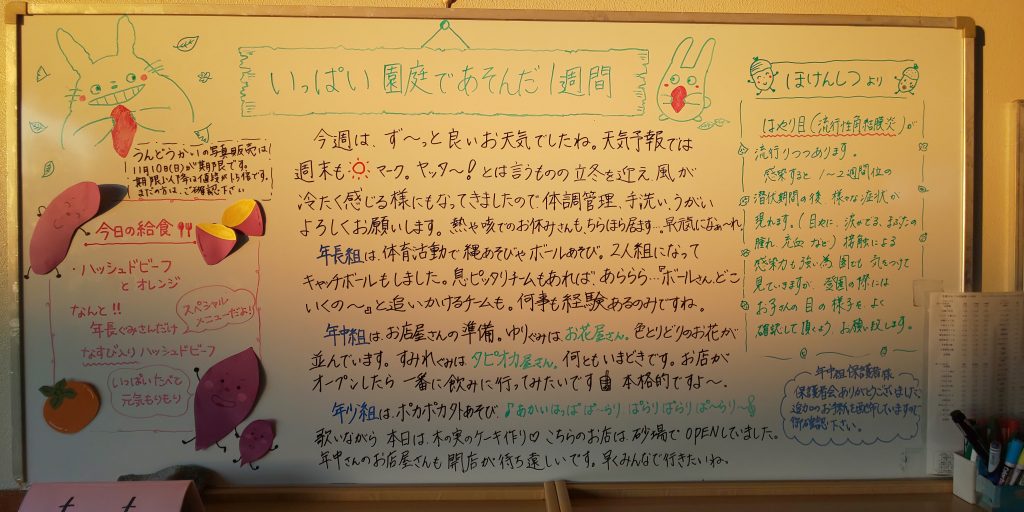 いっぱい園庭であそんだ1週間
うんどうかいの写真販売は
11月10日(日)が期限です。
期限以降は値段が1.5倍です。
まだの方は、ご確認下さい
今日の給食
・ハッシュドビーフ
と オレンジ
なんと!!
年長ぐみさんだけ
スペシャル
メニューだよ!
なすび入りハッシュドビーフ
いっぱいたべて
元気もりもり
今週は、ず〜っと良いお天気でしたね。天気予報では
週末も マーク。ヤッター!とは言うものの立冬を迎え、風が
冷たく感じる様にもなってきましたので体調管理、手洗い、うがい
よろしくお願いします。熱や咳でのお休みさんも、ちらほら居ます…早く元気になぁ〜れ。
年長組は、体育活動で縄あそびやボールあそび。2人組になって
キャッチボールもしました。息ピッタリチームもあれば、あららら…『ボールさん、どこ
いくの〜』と追いかけるチームも。何事も経験あるのみですね。
年中組は、お店屋さんの準備。ゆりぐみは、お花屋さん。色とりどりのお花が
並んでいます。すみれぐみは、タピオカ屋さん。何ともいまどきです。お店が
オープンしたら 一番に飲みに行ってみたいです 本格的ですよ〜。
年少組は、ポカポカ外あそび、♪あかいはっぱ ぱ〜らり ぱらり ぱらり ぱ〜らり〜
歌いながら 本日は、木の実のケーキ作り♡こちらのお店は、砂場でOPENしていました。
年中さんのお店屋さんも 開店が待ち遠しいです。早くみんなで行きたいね。
ほけんしつより
はやり目(流行性角結膜炎)が
流行りつつあります。
感染すると1〜2週間位の
潜伏期間の後、様々な症状が
現れます。(目やに、涙がでる、まぶたの
腫れ、充血 など) 接触による
感染力も強い為、園でも 気をつけて
見ていきますが、登園の際には
お子さんの目の様子を、よく
確認して頂くよう、お願い致します。
年中組 保護者様
保護者会、ありがとうございました。
追加のお手紙を配布していますので
御確認下さい。